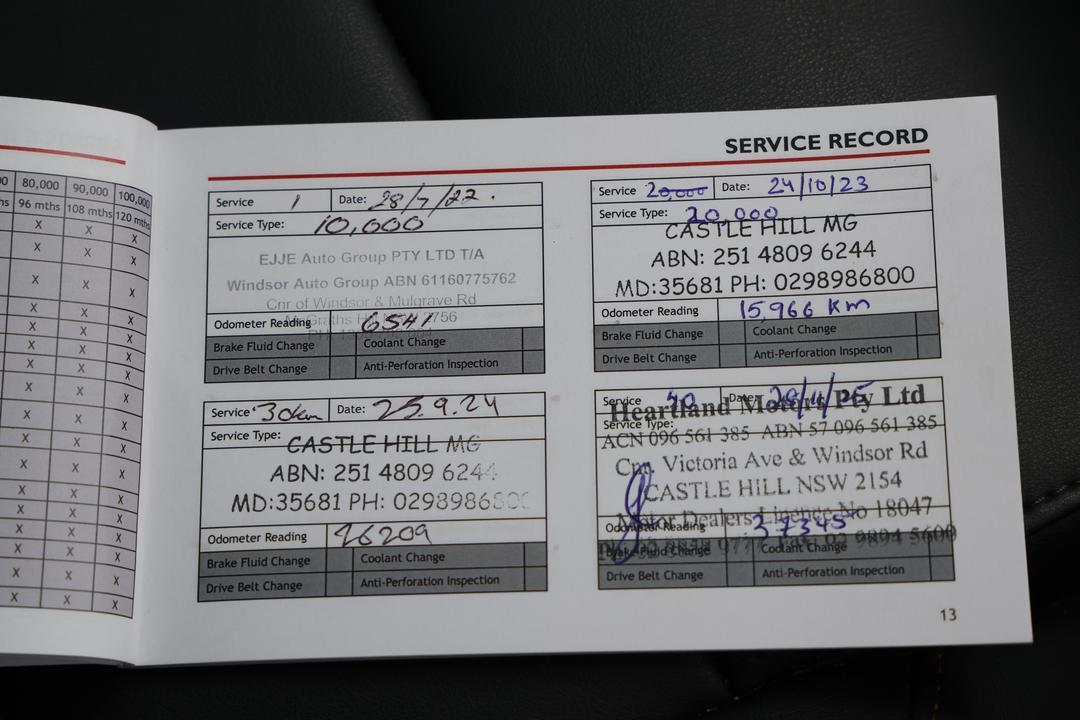 SERVICE RECORD
80,000 90,000 100,000
96 mths 108 mths 120 mths
X X X
X X X
X X X
X X X
X X X
X X X
X X X
X X X
X X X
X X X
X X X
X X X
X X X
X X X
X X X
X X X
Service 1 Date: 28/7/22.
Service Type: 10,000
EJJE Auto Group PTY LTD T/A
Windsor Auto Group ABN 61160775762
Cnr of Windsor & Mulgrave Rd
McGraths 2756
Odometer Reading 6541
Brake Fluid Change Coolant Change
Drive Belt Change Anti-Perforation Inspection
Service 20,000 Date: 24/10/23
Service Type: 20,000
CASTLE HILL MG
ABN: 251 4809 6244
MD:35681 PH: 0298986800
Odometer Reading 15,966 Km
Brake Fluid Change Coolant Change
Drive Belt Change Anti-Perforation Inspection
Service 30km Date: 25.9.24
Service Type:
CASTLE HILL MG
ABN: 251 4809 6244
MD:35681 PH: 0298986800
Odometer Reading 26209
Brake Fluid Change Coolant Change
Drive Belt Change Anti-Perforation Inspection
Service 40 Date:
Heartland Motors Pty Ltd
Service Type:
ACN 096 561 385 ABN 57 096 561 385
Cnr. Victoria Ave & Windsor Rd
CASTLE HILL NSW 2154
Motor Dealers Licence No 18047
Odometer Reading 37345
02 9894 5600
Brake Fluid Change Coolant Change
Drive Belt Change Anti-Perforation Inspection
13